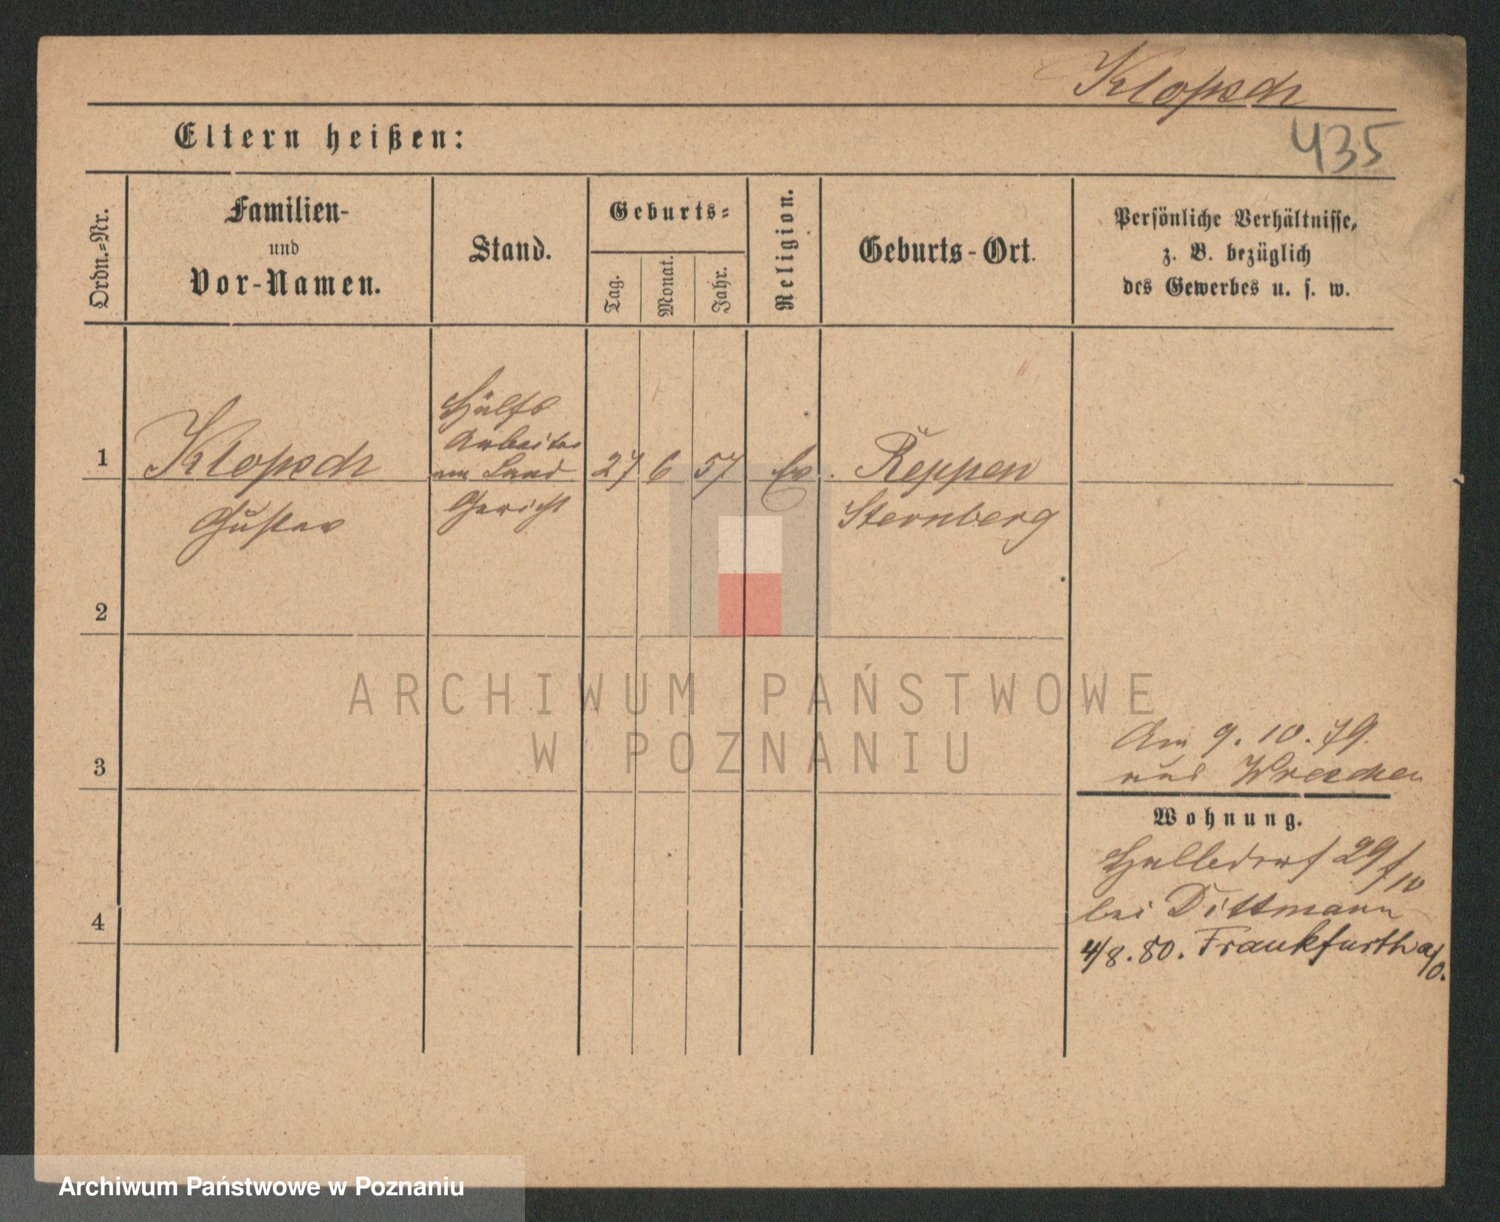 Klopsch
435
Eltern heißen:
Ordn.-Nr.
Familien-
und
Vor-Namen.
Stand.
Geburts-
Tag.
Monat.
Jahr.
Religion.
Geburts-Ort.
Persönliche Verhältnisse,
z. B. bezüglich
des Gewerbes u. s. w.
1
Klopsch
Gustav
Hülfs
Arbeiter
am Land
Gericht
27
6
57
Ev.
Reppen
Sternberg
2
3
4
Am 9.10.79.
aus Wreschen
Wohnung.
29/10
bei Dittmann
4/8.80. Frankfurth a/O.
ARCHIWUM PAŃSTWOWE
W POZNANIU
Archiwum Państwowe w Poznaniu